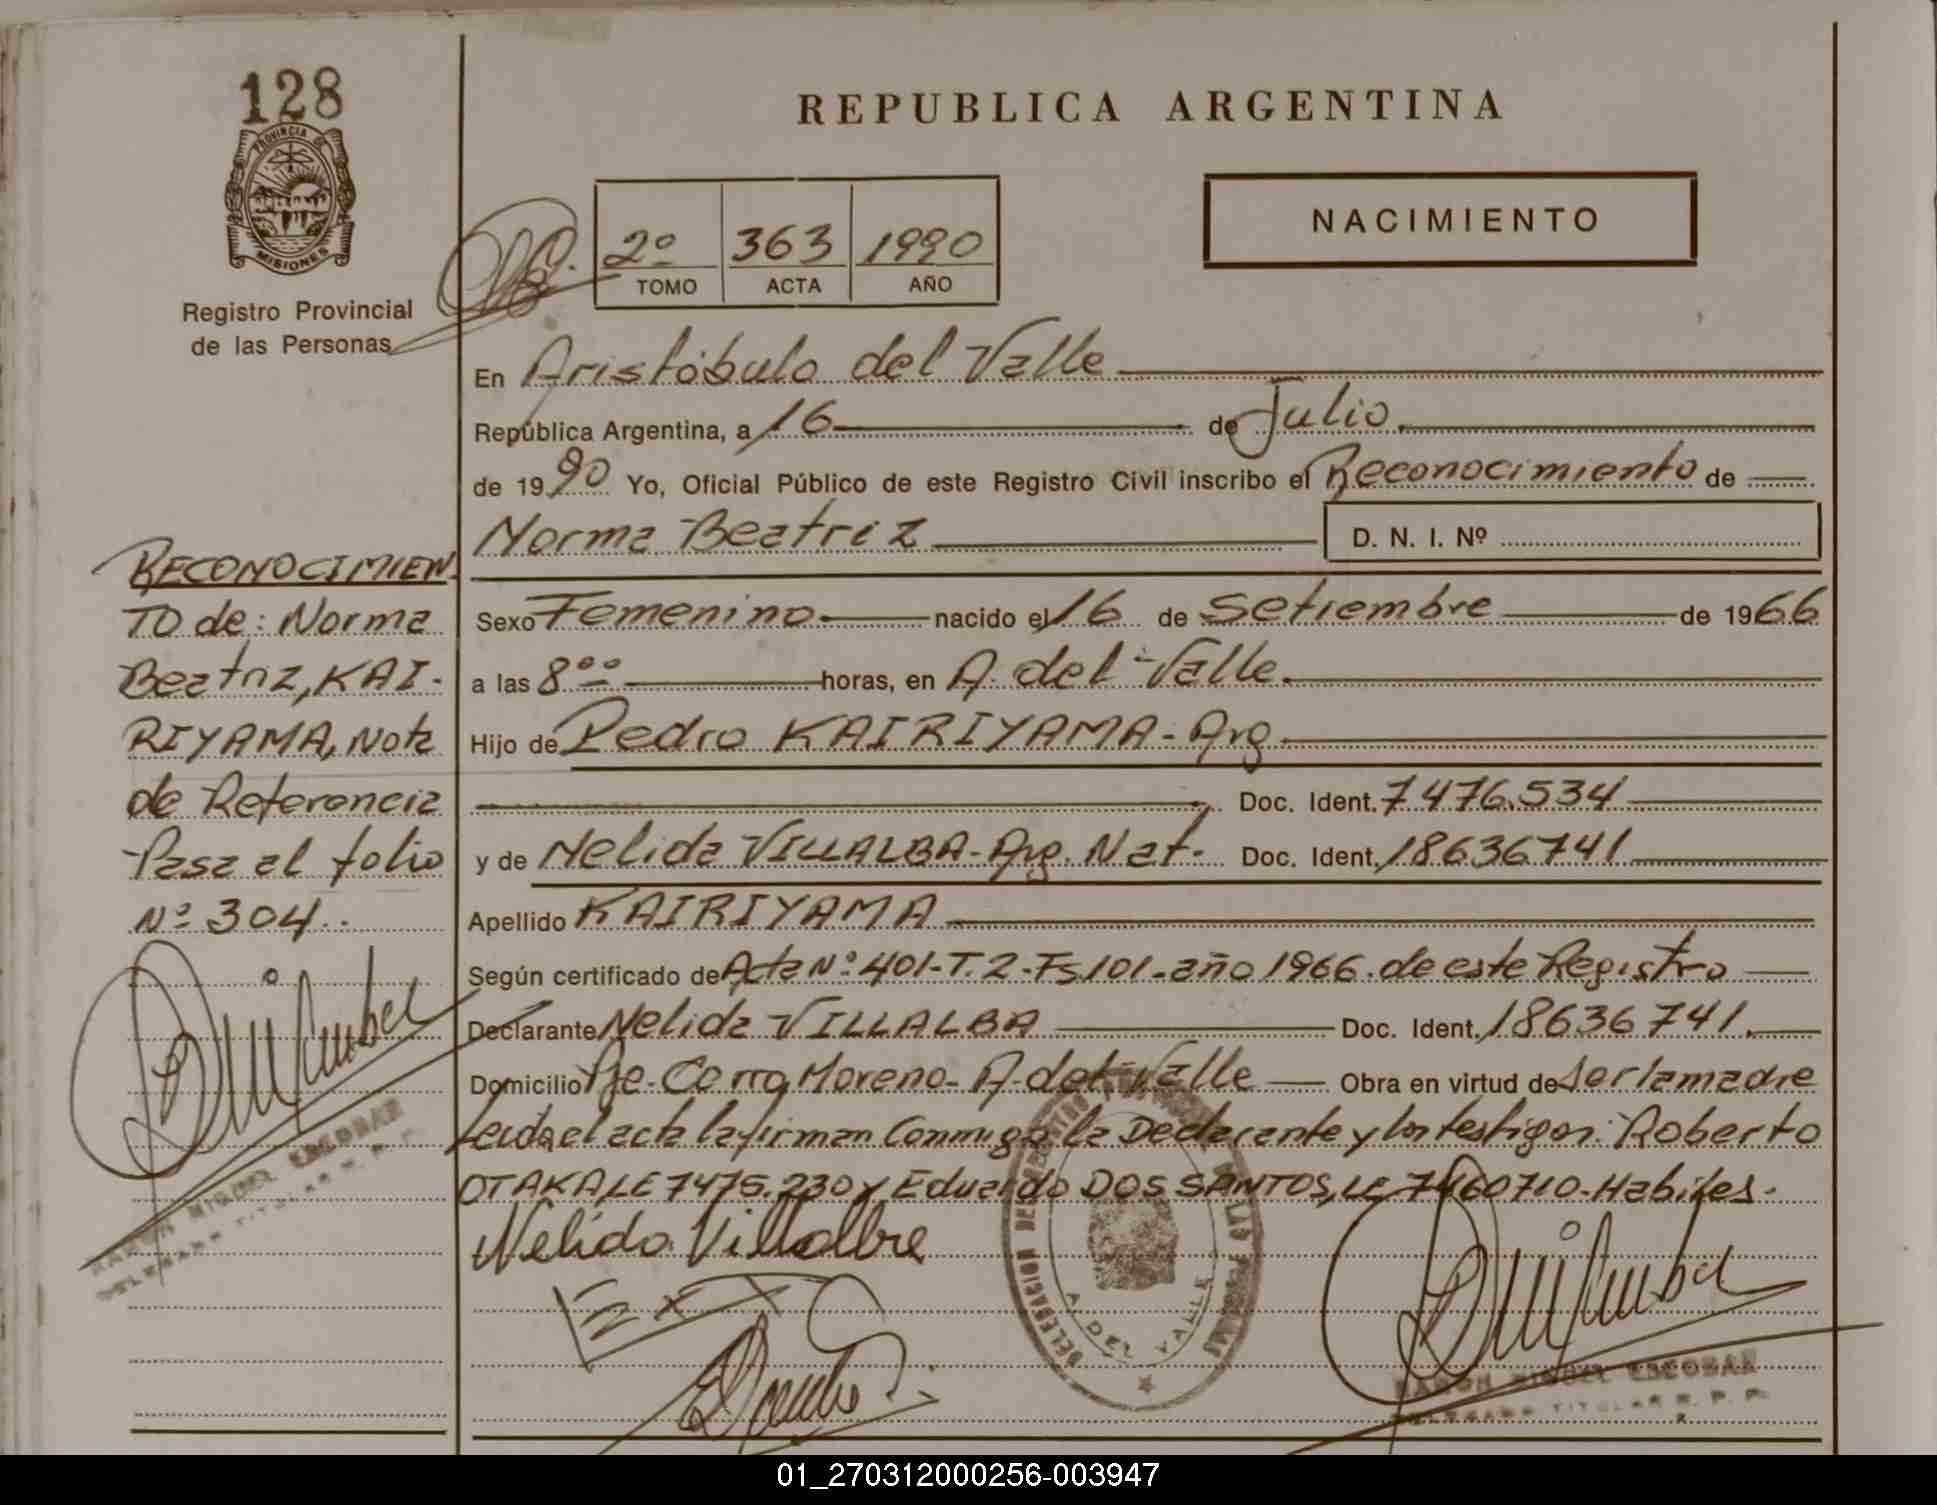 128
PROVINCIA DE
MISIONES
Registro Provincial
de las Personas
REPUBLICA ARGENTINA
NACIMIENTO
2º 363 1990
TOMO ACTA AÑO
En Aristóbulo del Valle
República Argentina, a 16 de Julio
de 1990 Yo, Oficial Público de este Registro Civil inscribo el Reconocimiento de
Norma Beatriz D. N. I. Nº
Sexo Femenino nacido el 16 de Setiembre de 1966
a las 8ºº horas, en A. del Valle
Hijo de Pedro KAIRIYAMA - Arg
Doc. Ident. 7476.534
y de Nelida VILLALBA - Arg. Nat. Doc. Ident. 18636741
Apellido KAIRIYAMA
Según certificado de Acta Nº 401-T. 2-Fs 101-año 1966. de este Registro
Declarante Nelida VILLALBA Doc. Ident. 18636741.
Domicilio Pje. Cerro Moreno - A. del Valle Obra en virtud de ser la madre
Leida el acta la firman Conmigo la Declarante y los testigos: Roberto
OTAKA LE 7475.230 y Eduardo DOS SANTOS, LE 7460710 - Habiles.
Nélida Villalba
RECONOCIMIEN
TO de: Norma
Beatriz, KAI-
RIYAMA, Nota
de Referencia
Pasa al folio
Nº 304.
RAMON MIGUEL ESCOBAR
DELEGADO TITULAR R. P. P.
DELEGACION DEL REGISTRO PROVINCIAL DE LAS PERSONAS
A. DEL VALLE
RAMON MIGUEL ESCOBAR
DELEGADO TITULAR R. P. P.
01_270312000256-003947